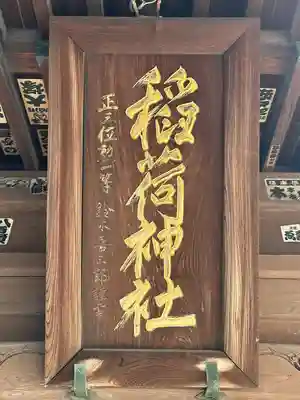 稲荷神社
正三位勲一等 鈴木喜三郎謹書